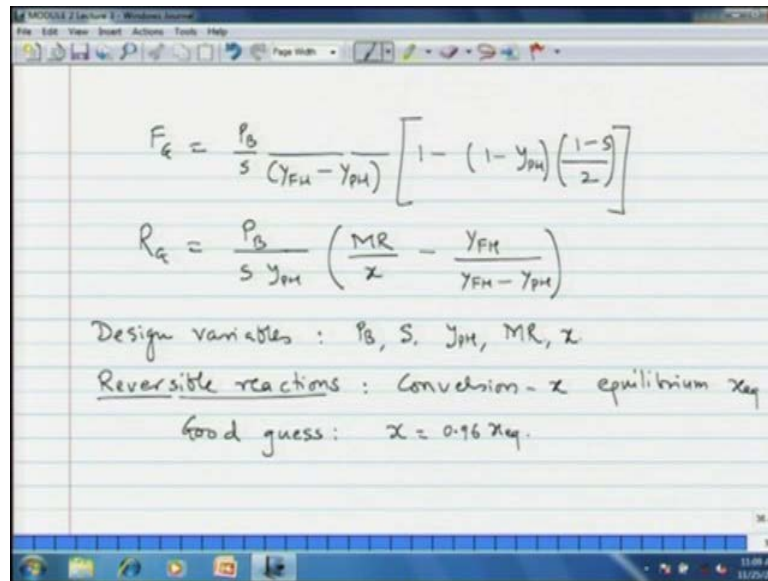 MODULE 2 Lecture 3 - Windows Journal
File Edit View Insert Actions Tools Help
Page Width
F_G = P_B / S (y_FH - y_PH) [1 - (1 - y_PH) ((1-S)/2)]
R_G = P_B / (S y_PH) (MR/x - y_FH / (y_FH - y_PH))
Design variables : P_B, S, y_PH, MR, x
Reversible reactions : Conversion - x equilibrium x_eq
Good guess : x = 0.96 x_eq.